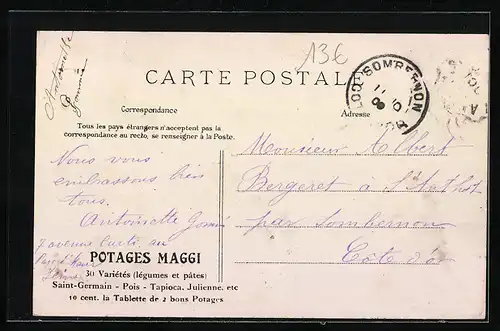 Antoinette
13€
CARTE POSTALE
SOMBERNON
Correspondance
Adresse
Tous les pays étrangers n'acceptent pas la
correspondance au recto, se renseigner à la Poste.
Nous vous
embrassons bien
tous.
Antoinette
7 avenue
Monsieur Albert
Bergeret à
par Sombernon
Côte d'or
POTAGES MAGGI
30 Variétés (légumes et pâtes)
Saint-Germain - Pois - Tapioca, Julienne, etc
10 cent. la Tablette de 2 bons Potages